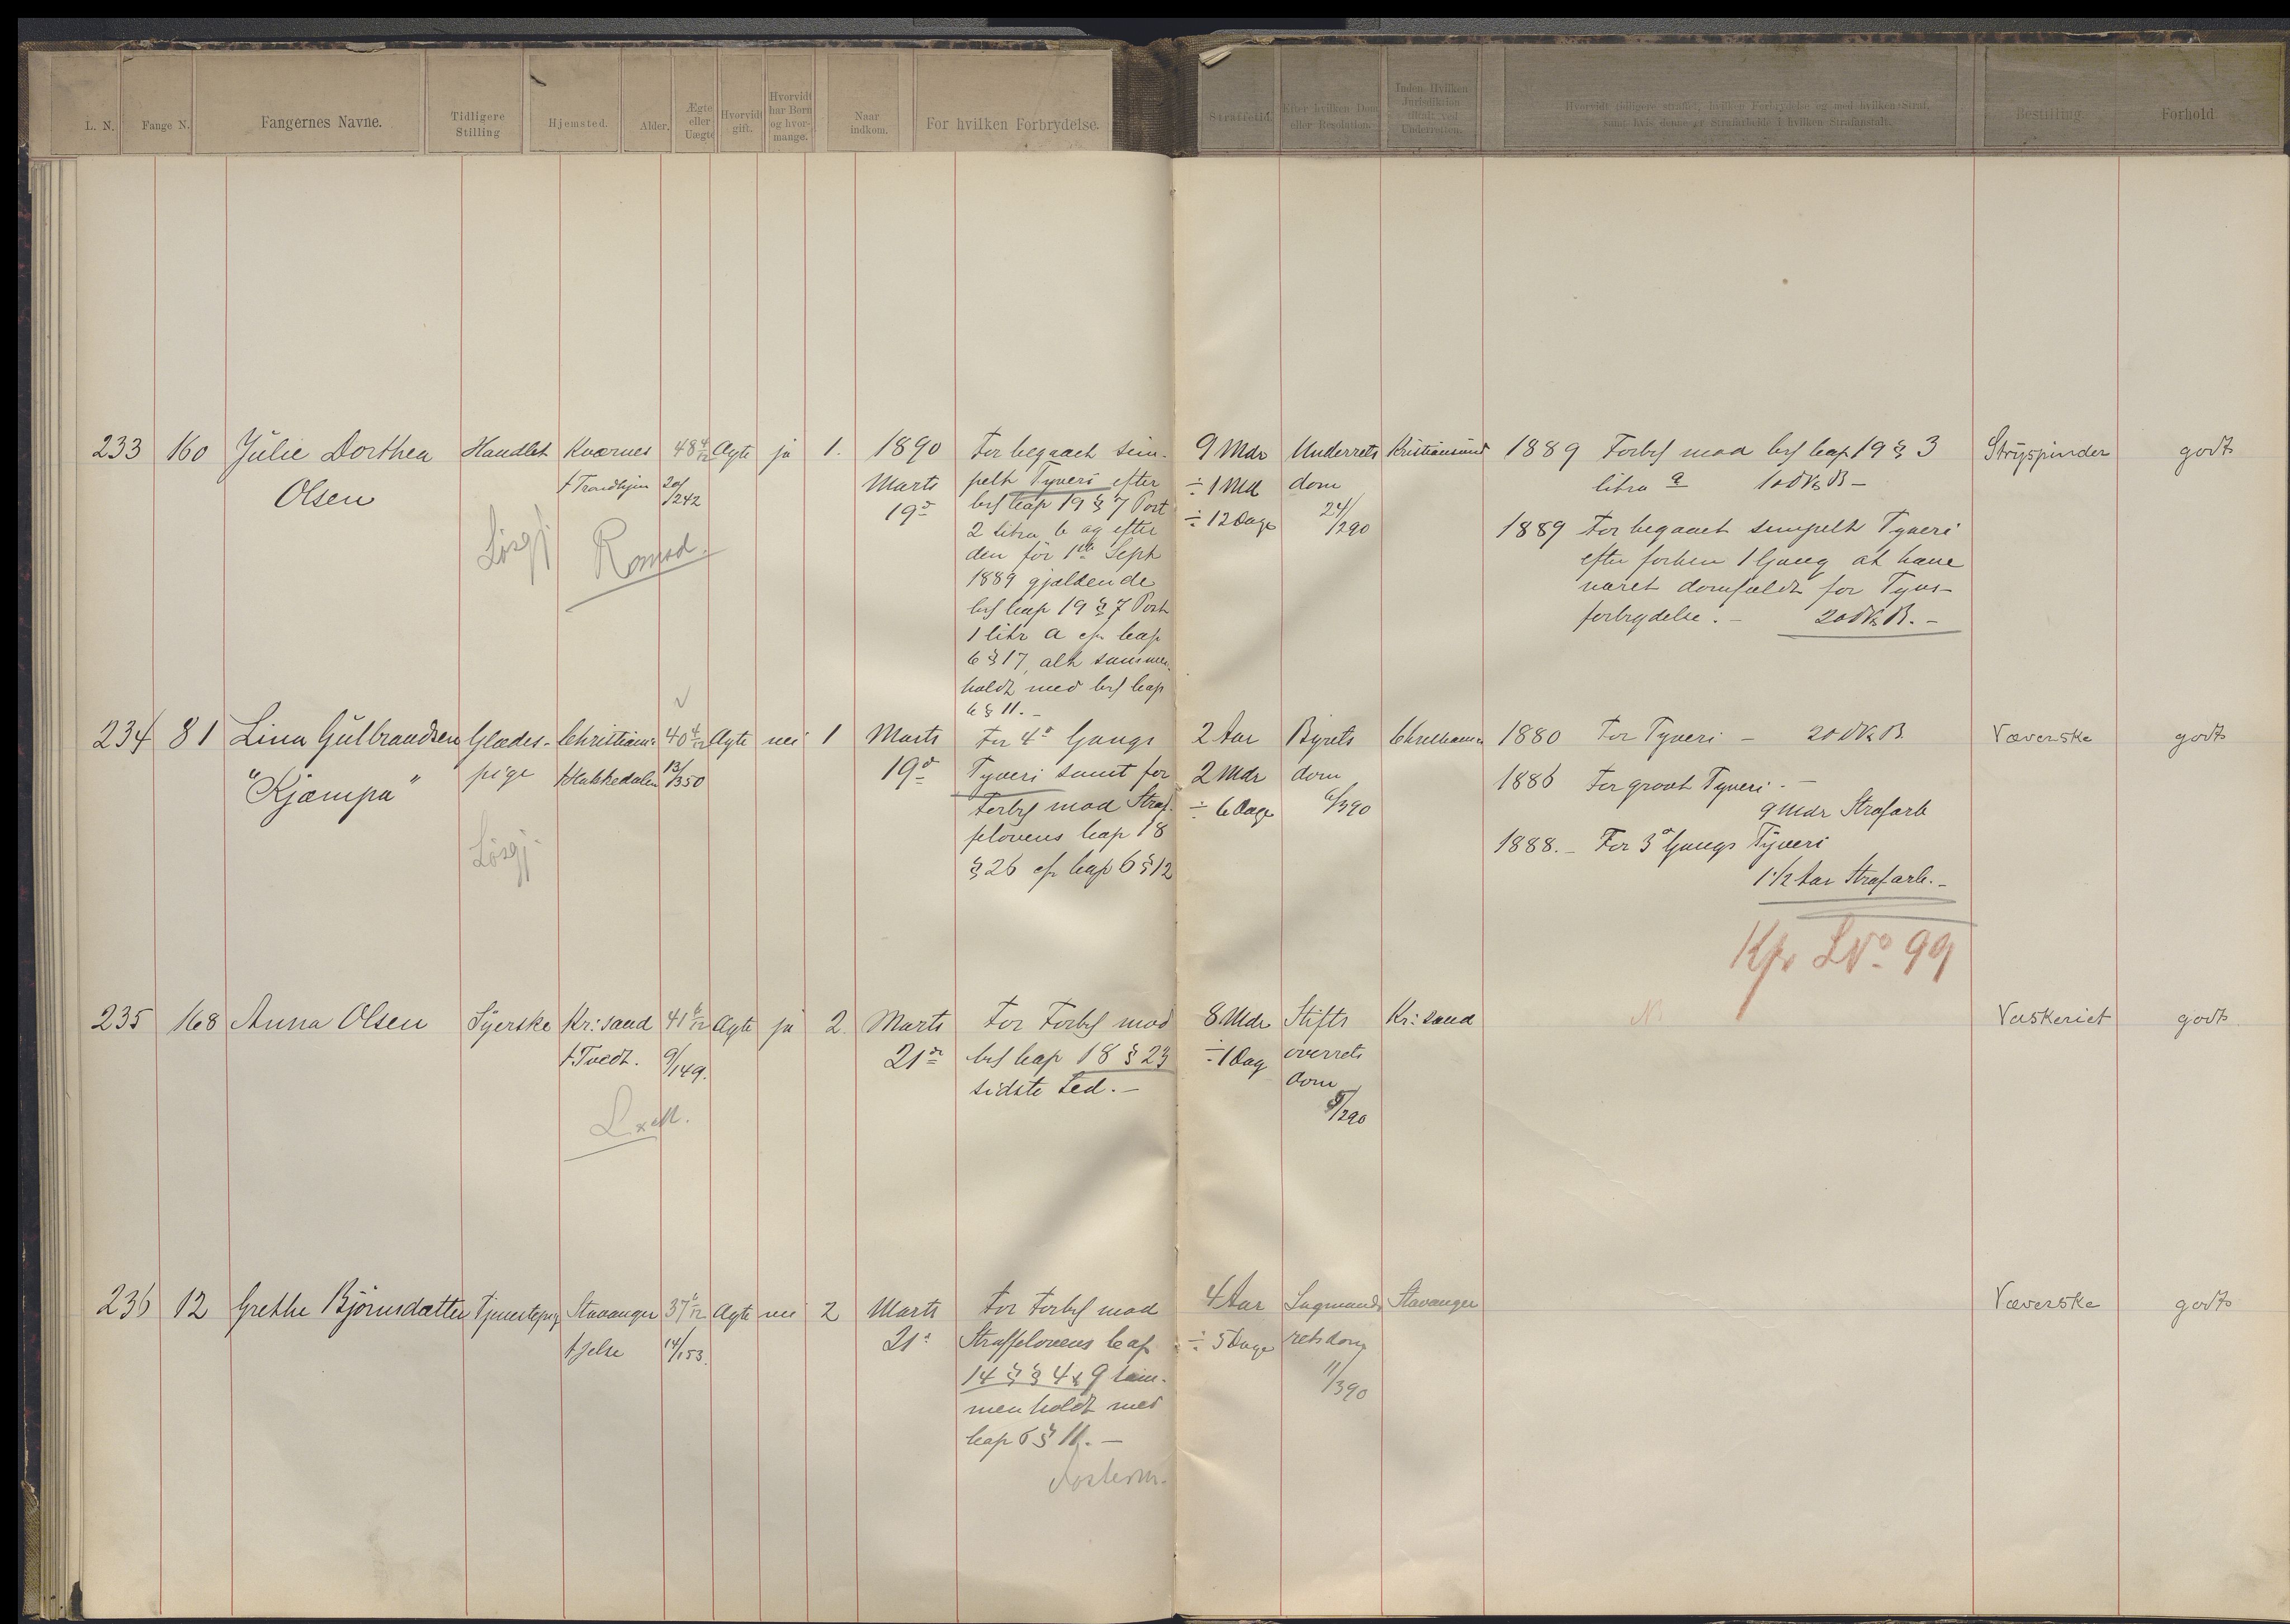 L. N. Fange N. Fangernes Navne. Tidligere Stilling Hjemsted. Alder. Ægte eller Uægte Hvorvidt gift. Hvorvidt har Børn og hvormange. Naar indkom. For hvilken Forbrydelse. Straffetid. Efter hvilken Dom eller Resolution. Inden Hvilken Jurisdiktion tiltalt ved Underretten. Hvorvidt tidligere straffet, hvilken Forbrydelse og med hvilken Straf, samt hvis denne er Strafarbeide i hvilken Strafanstalt. Bestilling. Forhold
233 160 Julie Dorthea Handlet Kværnes 48 4/12 Ægte ja 1. 1890 For begaaet sim-
Olsen f Trondhjem 20/242 Marts pelt Tyveri efter
19d lrf Cap 19 § 7 Post
Løsgj Romsd. 2 litra b og efter
den før 1ste Septb
1889 gjældende
lrf Cap 19 § 7 Post
1 litr a cfr Cap
6 § 17, alt sammen-
holdt med lrf Cap
6 § 11.-
9 Mdr Underrets Kristiansund 1889 Forbr mod lrf Cap 19 § 3 Stryspinder godt
÷ 1 Md dom litra a 10 D V & B -
÷ 12 Dage 24/290 1889 For begaaet simpelt Tyveri
efter forhen 1 Gang at have
været domfældt for Tyvs-
forbrydelse. - 20 D V & B. -
234 81 Lina Gulbrandsen Glædes- Christiania 40 4/12 Ægte nei 1 Marts For 4d Gangs
"Kjæmpa" pige f Hakkedalen 13/350 19d Tyveri samt for
Forbr mod Straf-
Løsgj felovens Cap 18
§ 26 cfr Cap 6 § 12
2 Aar Byrets Christiania 1880 For Tyveri - 20 D V & B. Væverske godt
2 Mdr dom 1886 For grovt Tyveri. -
÷ 6 Dage 6/390 9 Mdr Strafarb
1888. - For 3d Gangs Tyveri
1 1/2 Aar Strafarb. -
Kfr LNo 99
235 168 Anna Olsen Syerske Kr:sand 41 2/12 Ægte ja 2. Marts For Forbr mod
f. Tvedt. 9/149. 21de lrf Cap 18 § 23
sidste Led. -
L x M.
8 Mdr Stifts Kr:sand Vaskeriet godt
÷ 1 Dag overrets
dom
8/290
236 12 Grethe Bjørnsdatter Tjenestepig Stavanger 37 2/12 Ægte nei 2 Marts For Forbr mod
f Jelse 14/153. 21d Straffelovens Cap
14 § § 4 & 9 sam-
menholdt med
Cap 6 § 11. -
4 Aar Lagmands Stavanger Væverske godt
÷ 5 Dage retsdom
11/390